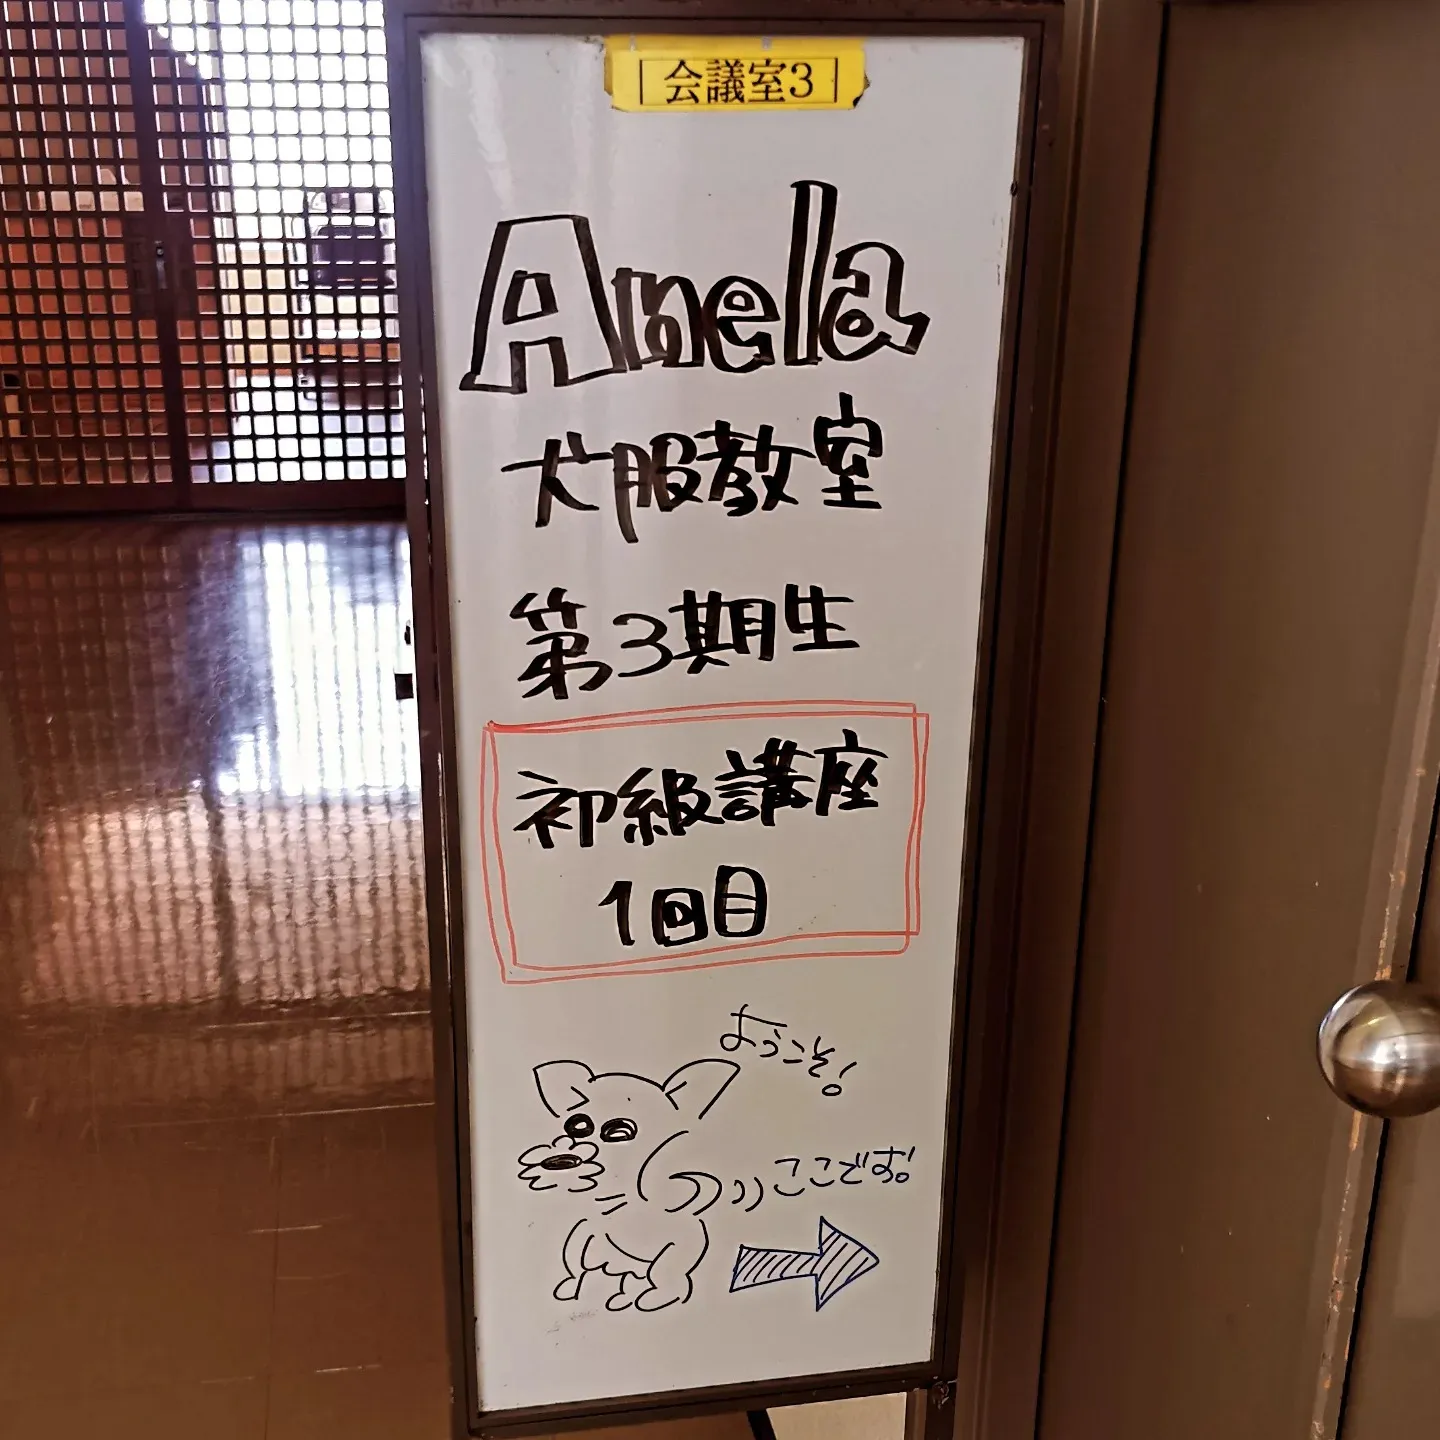 会議室3
Anela
犬服教室
第3期生
初級講座
1回目
ようこそ!
ここです。